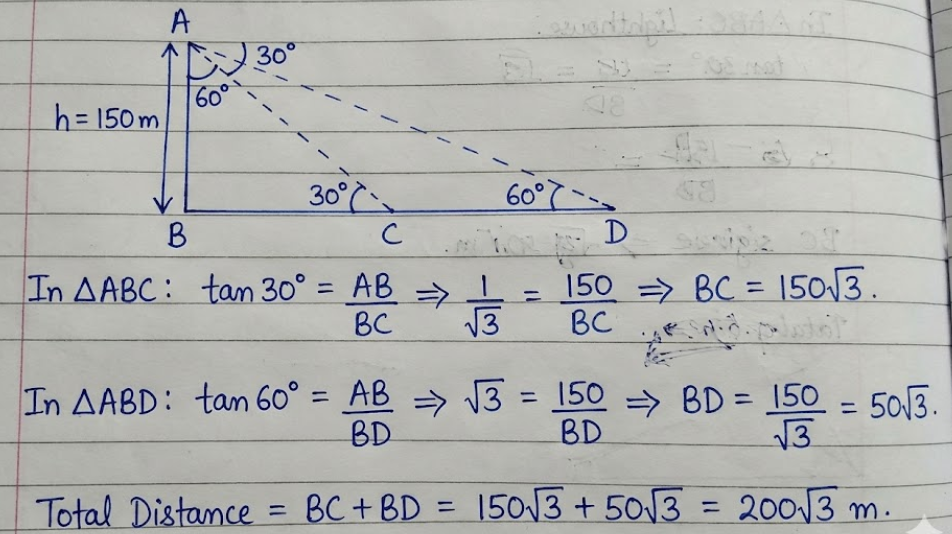 A
30°
60°
h = 150 m
30°
60°
B C D
In △ABC: tan 30° = AB/BC ⇒ 1/√3 = 150/BC ⇒ BC = 150√3.
In △ABD: tan 60° = AB/BD ⇒ √3 = 150/BD ⇒ BD = 150/√3 = 50√3.
Total Distance = BC + BD = 150√3 + 50√3 = 200√3 m.